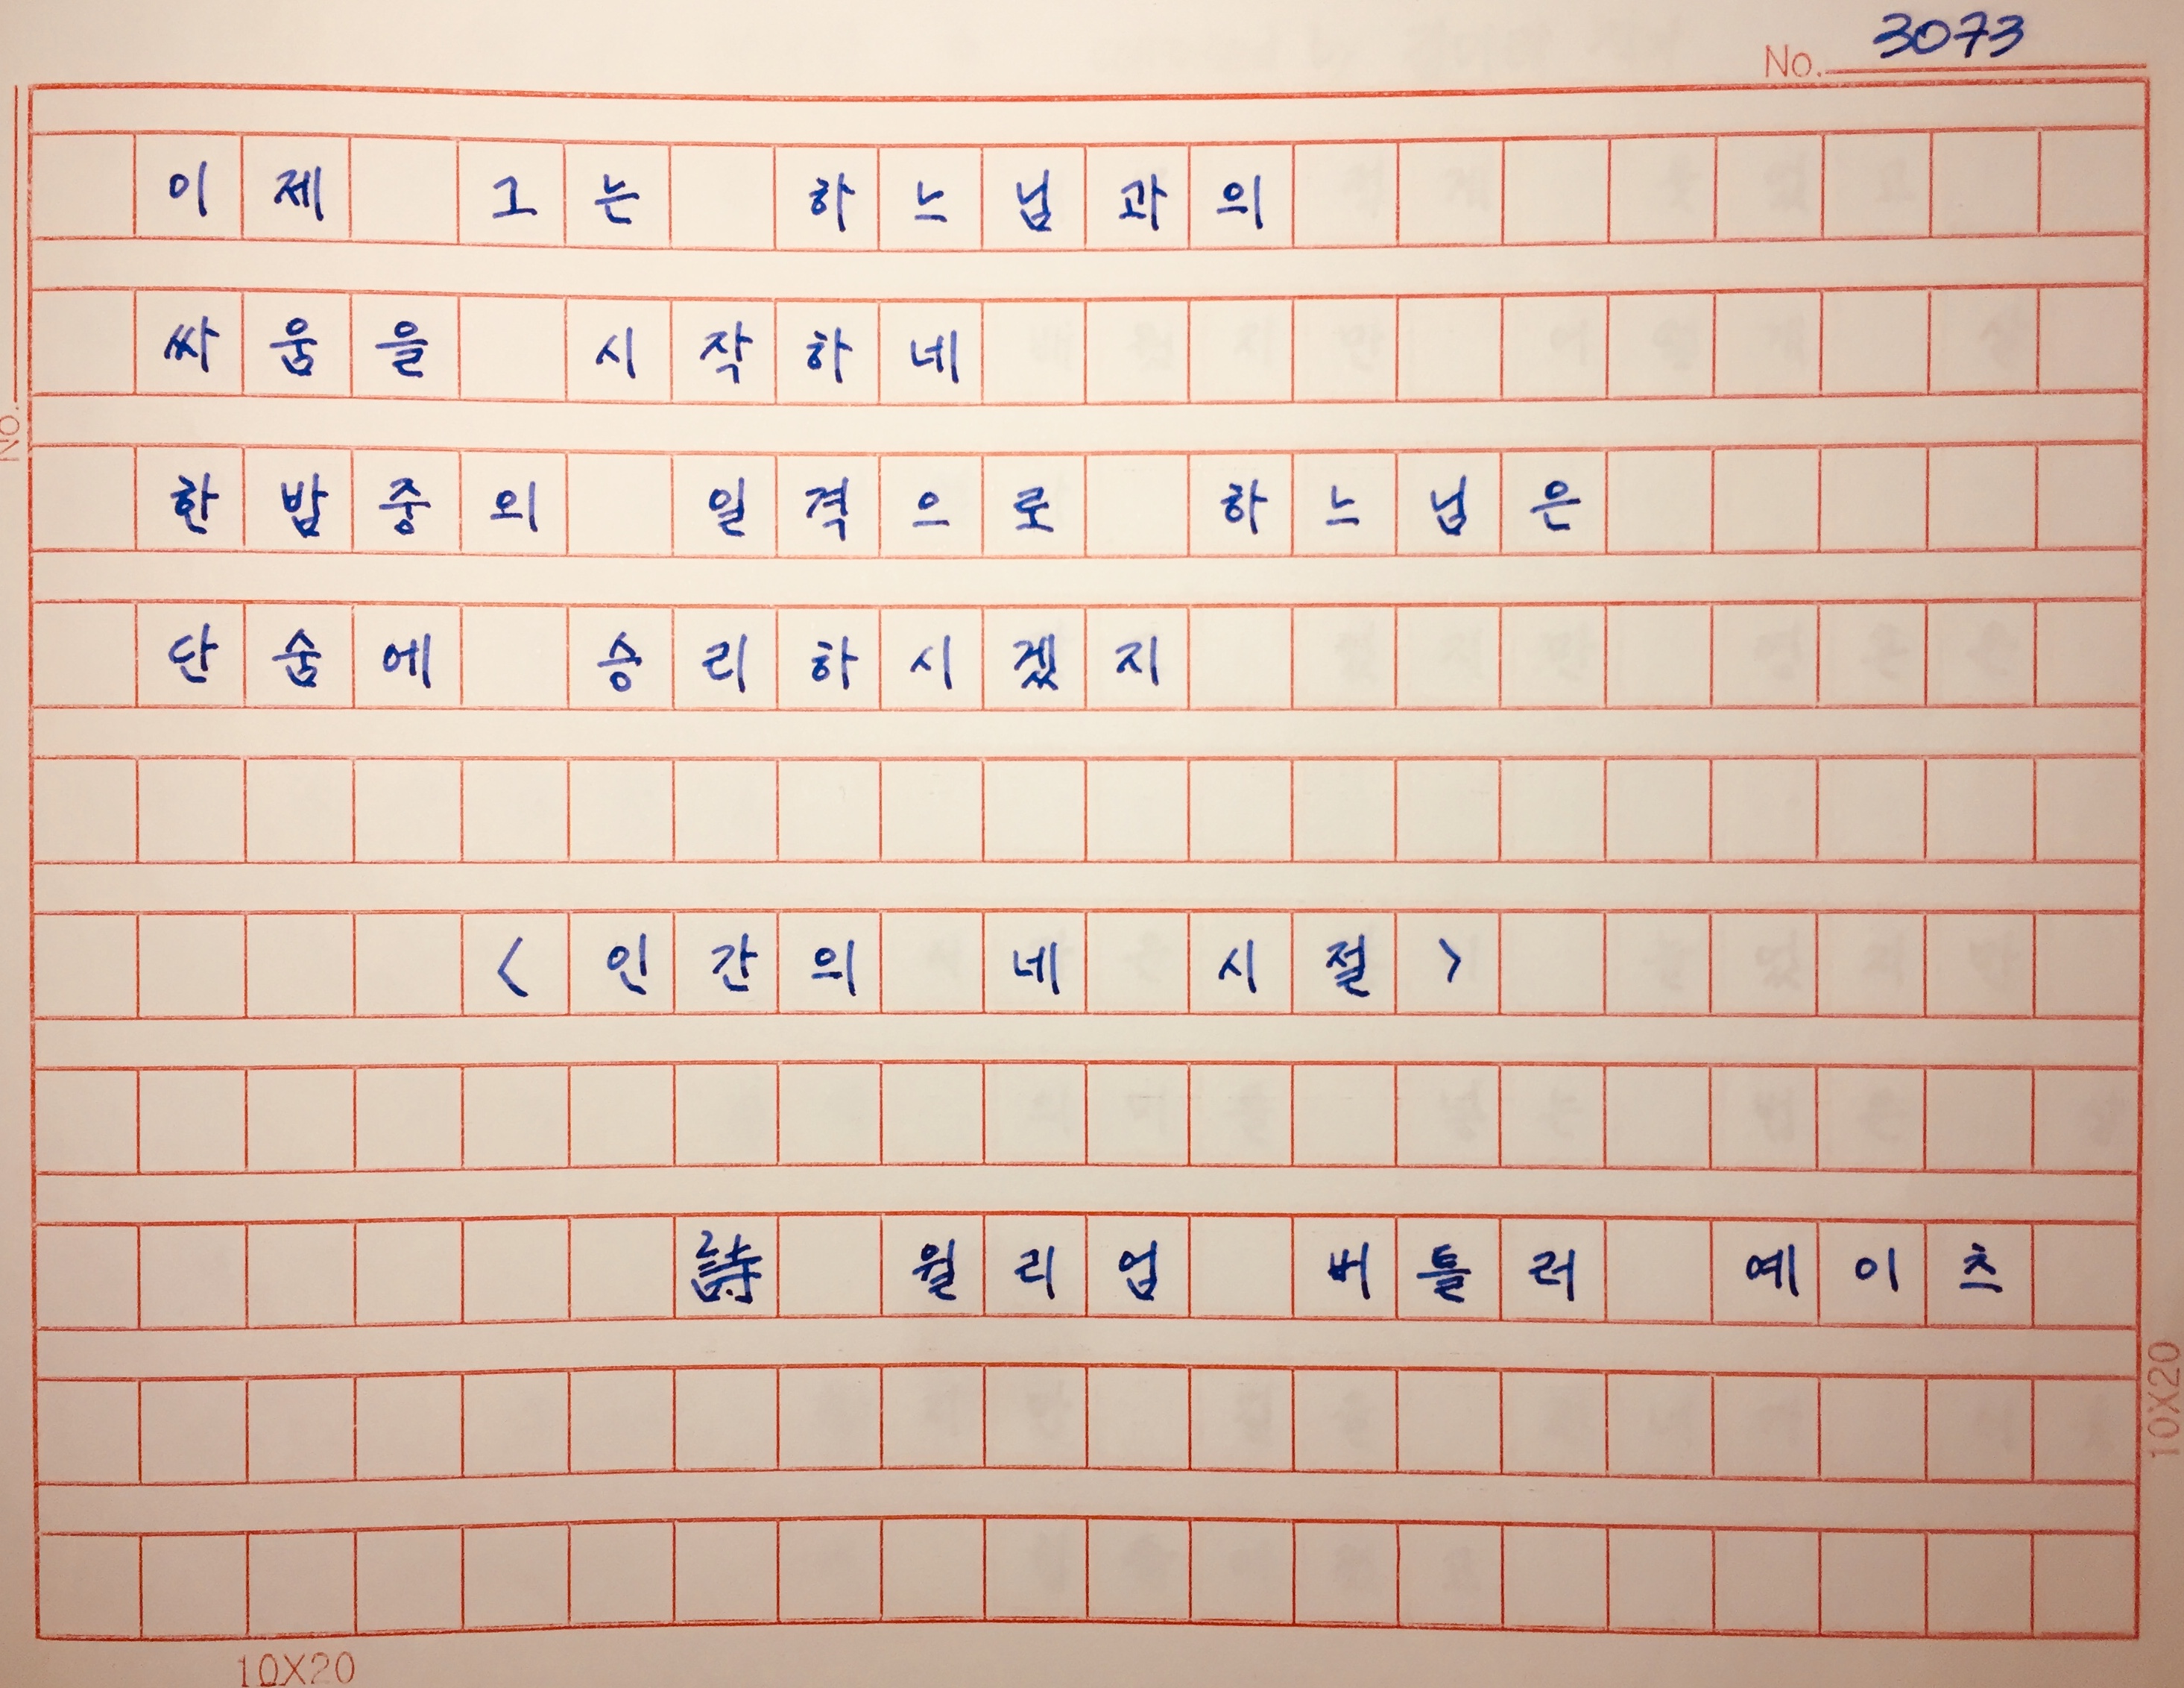 No. 3073
이제 그는 하느님과의
싸움을 시작하네
한밤중의 일격으로 하느님은
단숨에 승리하시겠지
<인간의 네 시절>
詩 윌리엄 버틀러 예이츠
10X20
10X20
No.